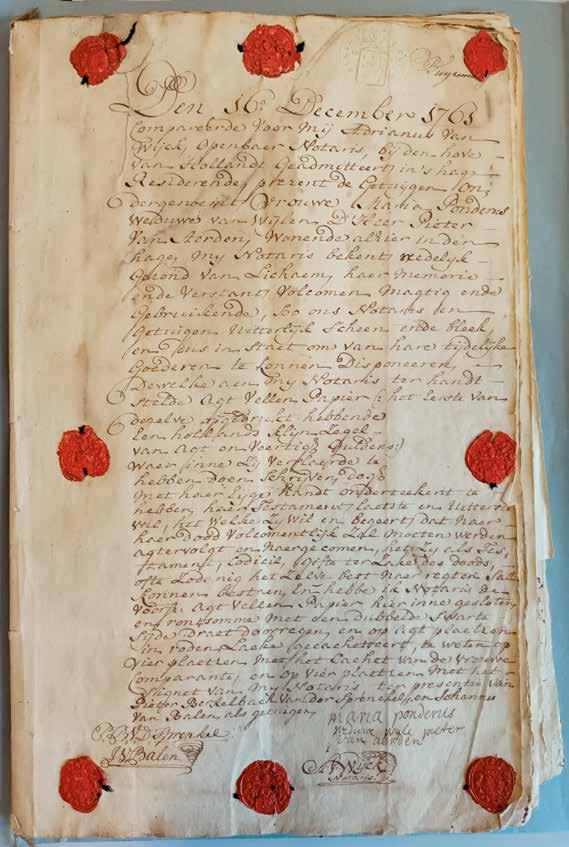 Den 16e December 1761
Compareerde voor mij Adrianus van
Wijck, Openbaer Notaris, bij den hove
van Hollandt Geadmitteert in 's hage
Residerende, prezent de Getuijgen On;
dergenoemt Vrouwe Maria Ponderus
Weduwe van Wijlen D'Heer Pieter
van Aerden, Wonende alhier in den
hage, Mij Notaris bekent, redelijk
Gezond van Lichaem, haer Memorie
ende Verstant Volcomen Magtig ende
Gebruijkende, soo ons Notaris en
Getuigen Uitterlijk Scheen ende bleek,
en Dus in Staet om van hare tijdelijke
Goederen te konnen Disponeeren,
Dewelke aen mij Notaris ter handt
stelde Agt Vellen Papier (: het Eerste van
dezelve opgedrukt hebbende
een hollands klijn Zegel
van Agt en Veertigh Guldens:)
Waer inne Zij Verclaerde te
hebben doen Schrijven, dogh
Met haer Eijge handt onderteekent te
hebben, haer Testament laetste en Uitterste
Wil, het Welke Zij Wil en Begeert dat Naer
haer dood Volcomentlijk Zal Moeten Werden
agtervolgt en Naergecomen, het Zij als Tes,
tament, Codicil, Gifte ter Zake des doods,
ofte Zode nig het Zelve best Naer regten Sal
konnen bestaen, En hebbe ik Notaris de
Voorsz: Agt Vellen Papier hier inne gesloten
en rontsomme Met een dubbelde Swarte
Sijde Draet doorregen, en op Agt plaetsen
in roden Lacke gecachetteert, te weten op
Vier plaetsen Met het Cachet van de Vrouwe
Comparante, en op Vier plaetsen Met het
Signet van Mij Notaris ter presentie van
Pieter Berkelbach van der Sprenckel, en Johannes
van Balen als getuigen
maria ponderus
weduwe wyle pieter
van aerden
P:B:V:D: Sprenkel
J:V: Balen
A:V: Wijck
Notaris